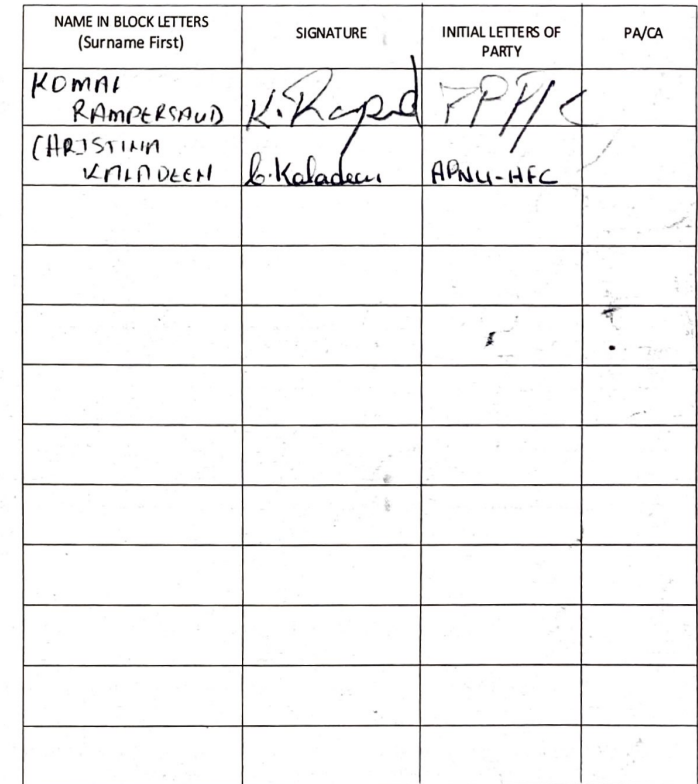 NAME IN BLOCK LETTERS
(Surname First)
SIGNATURE
INITIAL LETTERS OF
PARTY
PA/CA
KOMAL
RAMPERSAUD
K. Rapd
PPP/C
CHRISTINA
KALADEEN
C. Kaladeen
APNU-AFC